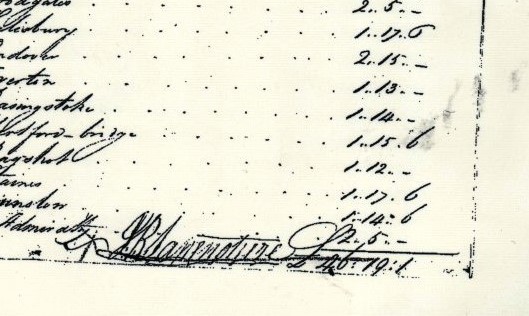 odgates 2..5..–
lisbury 1..17..6
ndover 2..15..–
verton 1..13..–
asingstoke 1..14..–
artford-bridge 1..15..6
agshot 1..12..–
taines 1..17..6
unslow 1..14..6
Admiralty 2..5..–
£ 46..19..1